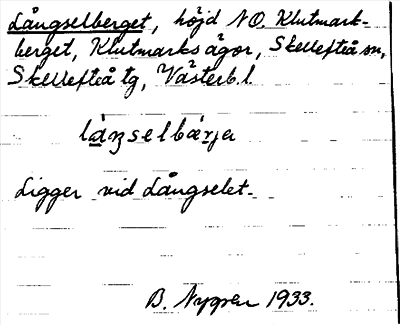 Långselberget, höjd NO. Klutmark-
berget, Klutmarks ägor, Skellefteå sn,
Skellefteå tg, Västerb. l.
Ligger vid Långselet.
B. Nygren 1933.